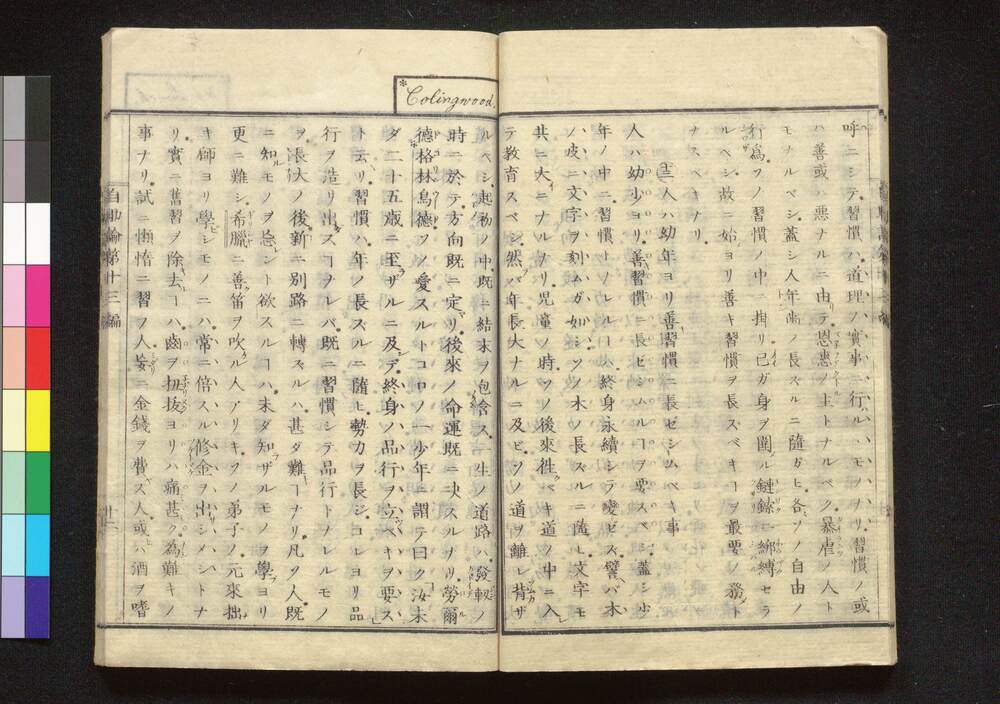 呼ニシテ習慣ハ道理ノ實事ニ行ルヽモノナリ習慣ノ或
ハ善或ハ惡ナルニ由テ恩惠ノ主トナルベク暴虐ノ人ト
モナルベシ蓋シ人年齒ノ長スルニ隨ガヒ各ソノ自由ノ
行爲フノ習慣ノ中ニ掛リ己ガ身ヲ圍ル鏈鎍ニ綁縛セラ
ルベシ故ニ始ヨリ善キ習慣ヲ長スベキヿヲ最要ノ務ト
ナスベキナリ
人ハ幼年ヨリ善習慣ニ長ゼシムベキ事
人ハ幼少ヨリ善習慣ニ長ゼシムルヿヲ要スベシ蓋シ少
年ノ中ニ習慣トナレルヿハ終身永續シテ變ゼス譬ヘバ木
ノ皮ニ文字ヲ刻ムガ如シソノ木ノ長スルニ隨ヒ文字モ
共ニ大ニナルナリ兒童ノ時ソノ後來徃ベキ道ノ中ニ入
テ教育スベシ然ラバ年長大ナルニ及ビソノ道ヲ離レ背ザ
*Colingwood.
ルベシ起初ノ中既ニ結末ヲ包含ス一生ノ道路ハ發軔ノ
時ニ於テ方向既ニ定マリ後來ノ命運既ニ决スルナリ勞爾
德格林烏德ソノ愛スルトコロノ一少年ニ謂テ曰ク汝未
ダ二十五歲ニ至ザルニ及デ終身ノ品行ヲ立ベキヲ要ス
ト云リ習慣ハ年ノ長スルニ隨ヒ勢力ヲ長ジコレヨリ品
行ヲ造リ出スヿナレバ既ニ習慣シテ品行トナレルモノ
ヲ張大ノ後新ニ別路ニ轉スルハ甚ダ難ヿナリ凡ソ人既
ニ知ルモノヲ忘ント欲スルヿハ未ダ知ザルモノヲ學ブヨリ
更ニ難シ希臘ニ善笛ヲ吹ル人アリキソノ弟子ノ元來拙
キ師ヨリ學ビシモノニハ常ニ倍スル修金ヲ出シメシトナ
リ實ニ舊習ヲ除去ヿハ齒ヲ扭拔ヨリハ痛甚ク爲難キノ
事ナリ試ニ懶惰ニ習フ人妄ニ金錢ヲ費ス人或ハ酒ヲ嗜
自助論第十三編